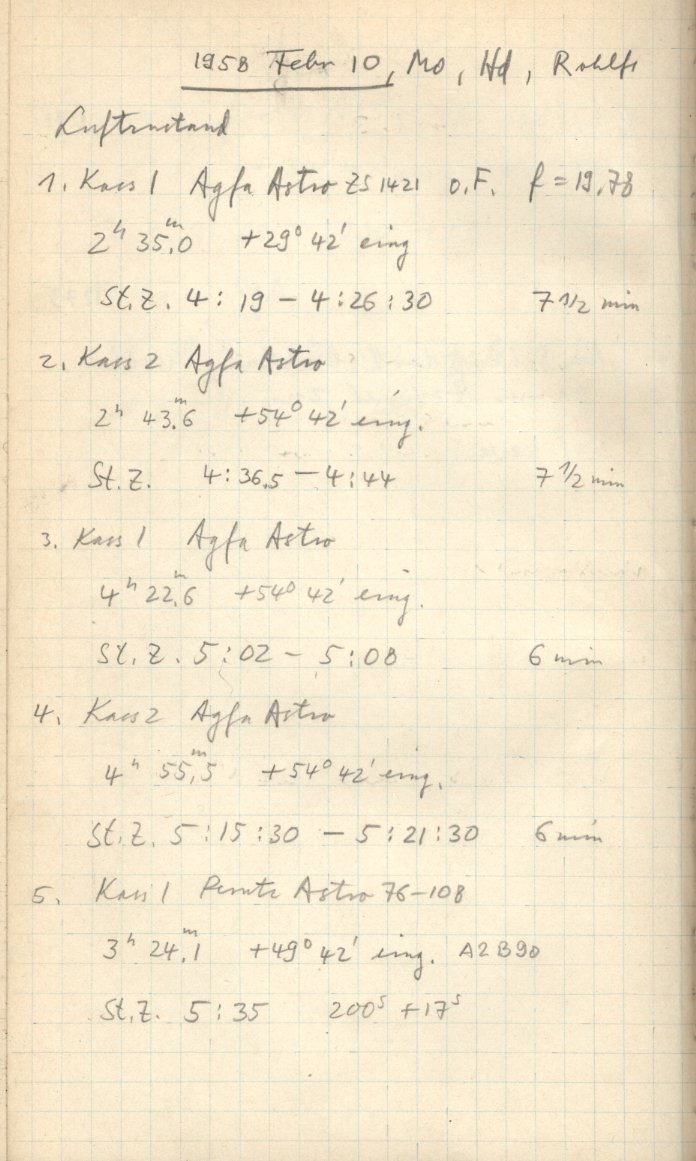 1958 Febr 10, Mo, Hd, Rohlfs
Luftzustand
1. Kass 1 Agfa Astro ZS 1421 o.F. f = 19,78
2ʰ 35,ᵐ0 +29° 42' eing
St.Z. 4:19 – 4:26:30 7 1/2 min
2. Kass 2 Agfa Astro
2ʰ 43,ᵐ6 +54° 42' eing.
St.Z. 4:36,5 – 4:44 7 1/2 min
3. Kass 1 Agfa Astro
4ʰ 22,ᵐ6 +54° 42' eing.
St.Z. 5:02 – 5:08 6 min
4. Kass 2 Agfa Astro
4ʰ 55,ᵐ5 +54° 42' eing.
St.Z. 5:15:30 – 5:21:30 6 min
5. Kass 1 Perutz Astro 76–108
3ʰ 24,ᵐ1 +49° 42' eing. A2B90
St.Z. 5:35 200ˢ +17ˢ